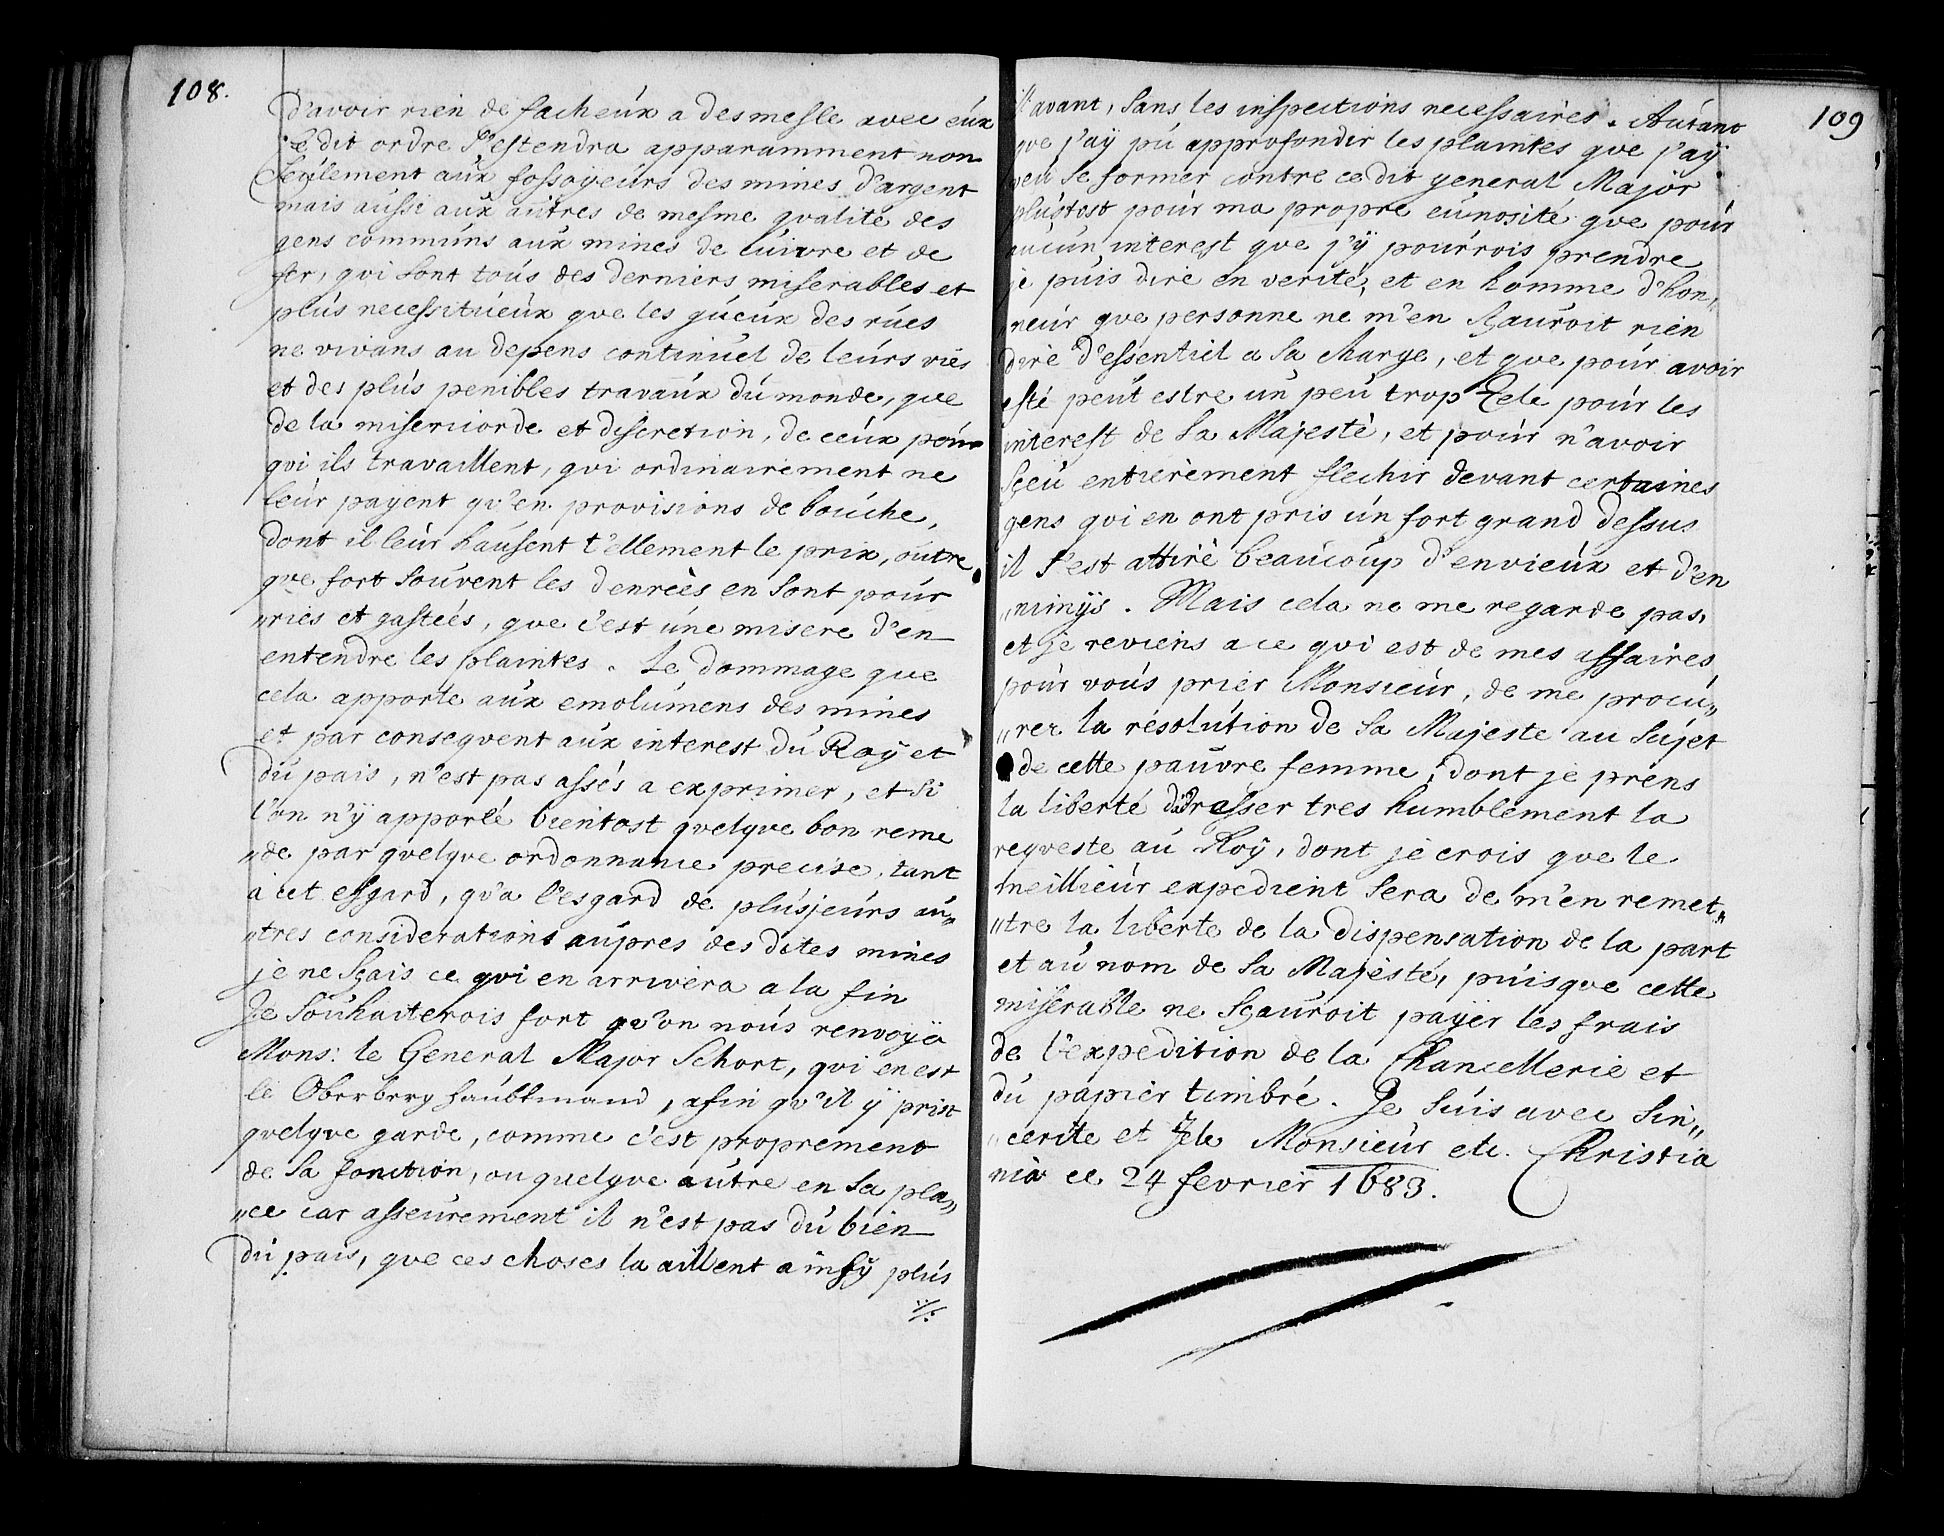 108.
d'avoir rien de facheux a desmesle avec eux
Le dit ordre s'estendra apparamment non
seulement aux fossoyeurs des mines d'argent
mais aussi aux autres de mesme qvalité des
gens communs aux mines de cuivre et de
fer, qvi sont tous des derniers miserables et
plus necessitueux qve les gueux des rues
ne vivans au depens continuel de leurs vies
et des plus penibles travaux du monde, qve
de la misericorde et discretion, de ceux pour
qvi ils travaillent, qvi ordinairement ne
leur payent qv'en provisions de bouche,
dont il leur hausent t'ellement le prix, outre
qve fort souvent les denrées en sont pour
„ries et gastées, qve c'est une misere d'en
entendre les plaintes. Le dommage qve
cela apporte aux emolumens des mines
et par conseqvent aux interest du Roÿ et
du pais, n'est pas assés a exprimer, et si
l'on n'ÿ apporté bientost qvelqve bon reme
„de par qvelqve ordonnance precise, tant
a cet essgard, qv'a l'esgard de plusjeurs au„
„tres considerations aupres des dites mines
je ne sçais ce qvi en arrivera a la fin
Je souhaiterois fort qv'on nous renvoÿa
Mons: le General Major Schort, qvi en est
le Oberberg haubtmand, afin qv'il ÿ prist
qvelqve garde, comme c'est proprement
de sa fonction, ou quelqve autre en sa pla„
„ce car asseurement il n'est pas du bien
du pais, qve ces choses la aillent ainsÿ plus
./.
109
avant, sans les inspections necessaires. Autant
qve j'aÿ pu approfonder les plaintes qve j'aÿ
veu se former contre ce dit general Major
plustost pour ma propre curiosité qve pour
aucun interest qve j'ÿ pourrois prendre
je puis dire en verité, et en homme d'hon„
neur qve personne ne m'en sçauroit rien
dire d'essentiel a sa charge, et qve pour avoir
esté peut estre un peu trop Zele pour les
interest de sa Majesté, et pour n'avoir
sçeu entierement flechir devant certaines
gens qvi en ont pris un fort grand dessus
il s'est attiré beaucoup d'envieux et d'en
„nimÿs. Mais cela ne me regarde pas,
et je reviens a ce qvi est de mes affaires
pour vous prier Monsieur, de me procu„
„rer la résolution de sa Majeste au sujet
de cette pauvre femme, dont je prens
la liberté d'adrasser tres humblement la
reqveste au Roÿ, dont je crois qve le
meillieur expedient sera de m'en remet„
„tre la liberte de la dispensation de la part
et au nom de sa Majesté, puisqve cette
miserable ne sçauroit paÿer les frais
de l'expedition de la Chancellerie et
du papier timbré. Je suis avec sin„
„cerite et Zele Monsieur etc. Christia
nia ce 24 fevrier 1683.